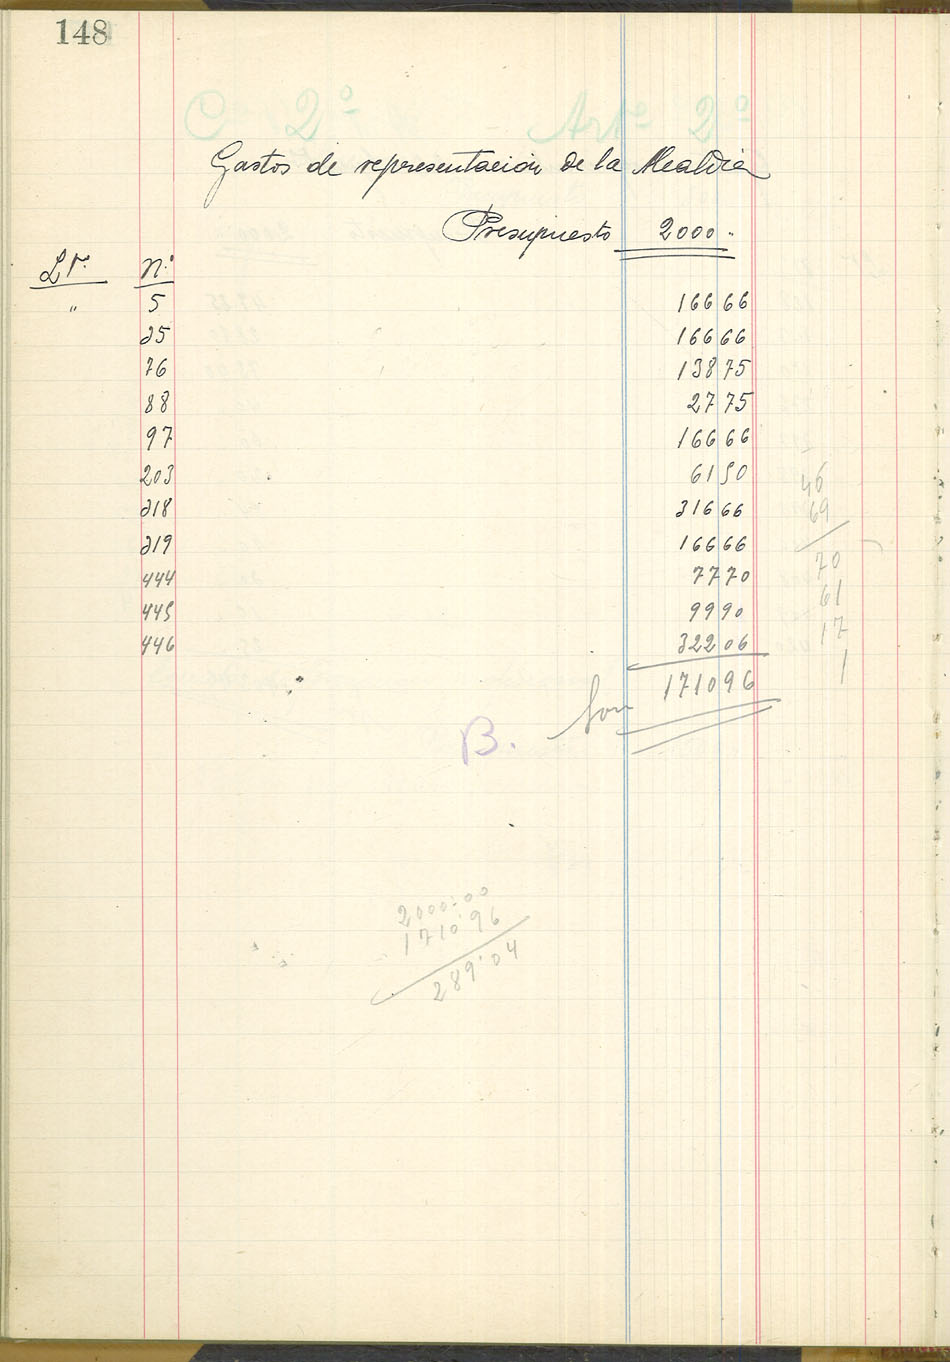 148
C 2º Artº 2º
Gastos de representación de la Alcaldia
Presupuesto 2000.
Lº. Nº
" 5 166 66
25 166 66
76 138 75
88 27 75
97 166 66
203 61 50
218 316 66
219 166 66
444 77 70
445 99 90
446 322 06
Son 1710 96
46
69
70
61
17
1
B.
2000:00
1710'96
289'04